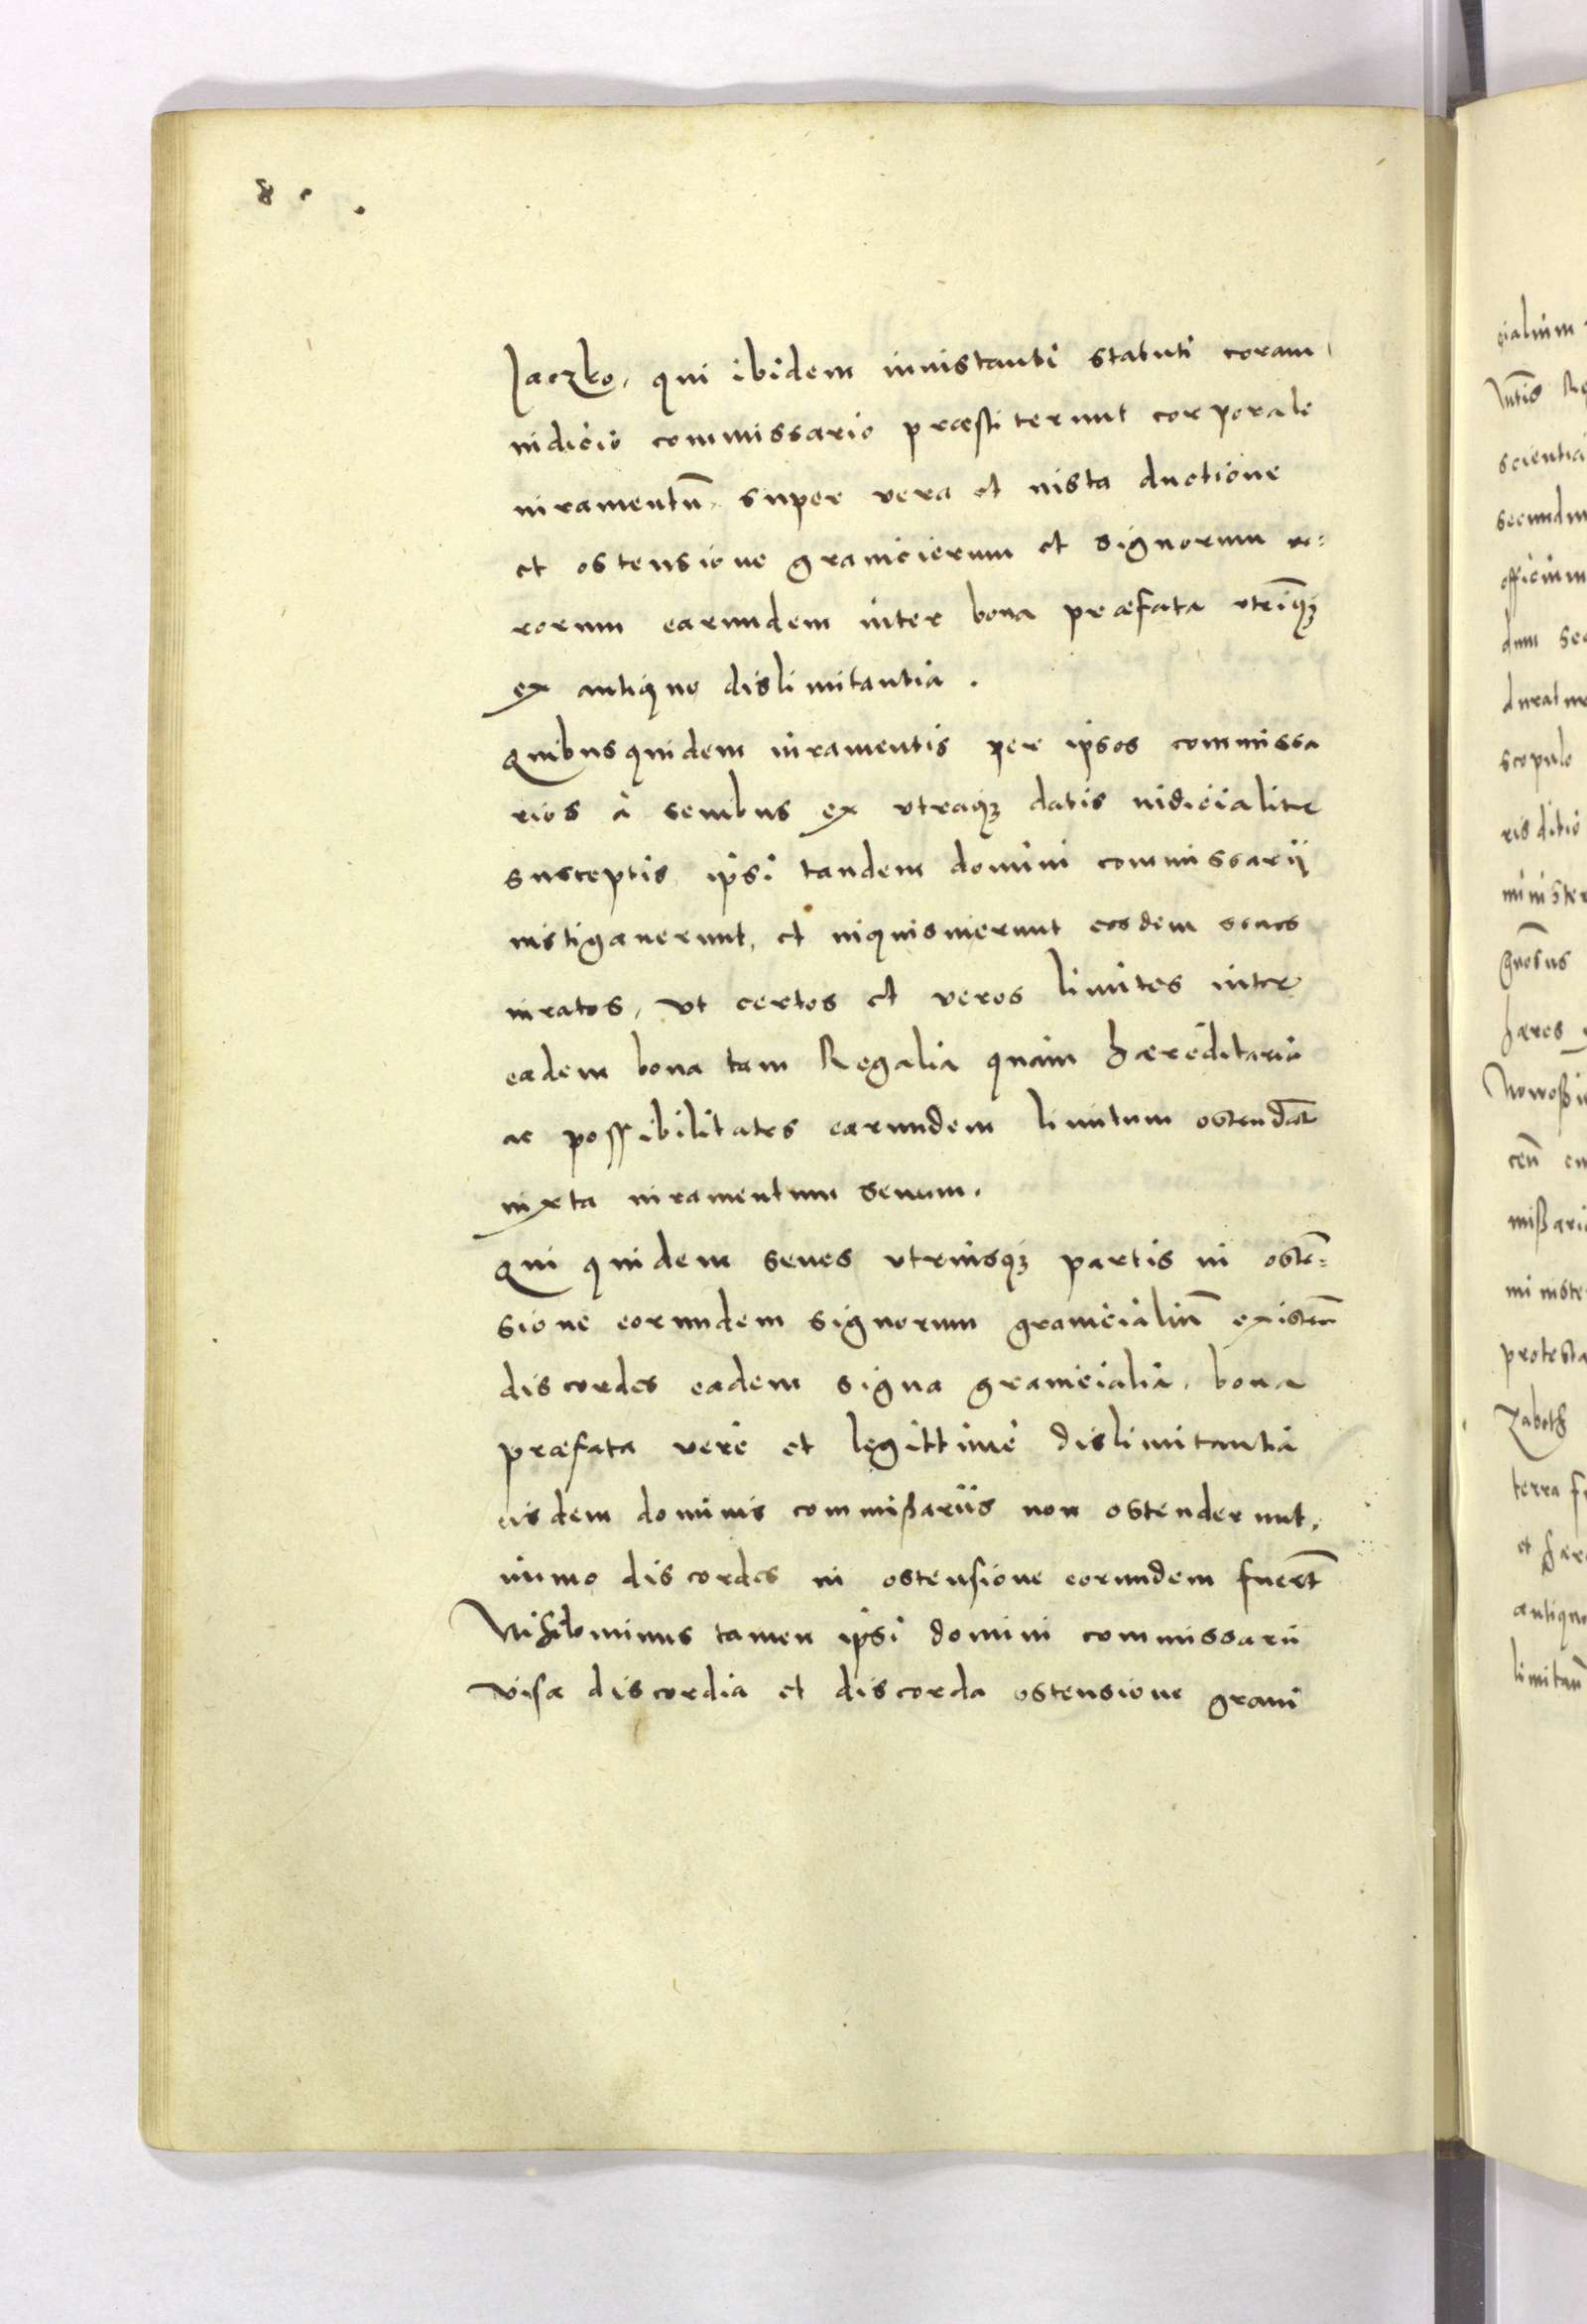 8
Iaczko, qui ibidem in instanti statuti coram
iudicio commissario præstiterunt corporale
iuramentū super vera et iusta ductione
et ostensione granicierum et signorum ve=
rorum earundem inter bona præfata vtrīq3
ex antiquo dislimitantia.
Quibusquidem iuramentis per ipsos commissa
rios à senibus ex vtraq3 datis iudicialiter
susceptis ipsi tandem domini commissarij
instigauerunt, et inquisiuerunt eosdem senes
iuratos, vt certos et veros limites inter
eadem bona tam Regalia quàm hæreditaria
ac possibilitates earundem limitum ostendāt
iuxta iuramentum senum.
Qui quidem senes vtriusq3 partis in ostē=
sione eorundem signorum granicialiū existen̄
discordes eadem signa granicialia, bona
præfata verè et legittimè dislimitantia
eisdem dominis commißarijs non ostenderunt,
immo discordes in ostensione eorundem fuerūt
Nihilominus tamen ipsi domini commissarij
visa discordia et discorda ostensione grani
cialium
scientia
secundum
officium
dum
scopulo
ris ditio
gn̄osus
hæres
mißari
protesta
Zaboth
terra
et hær
antiquo
limitan̄